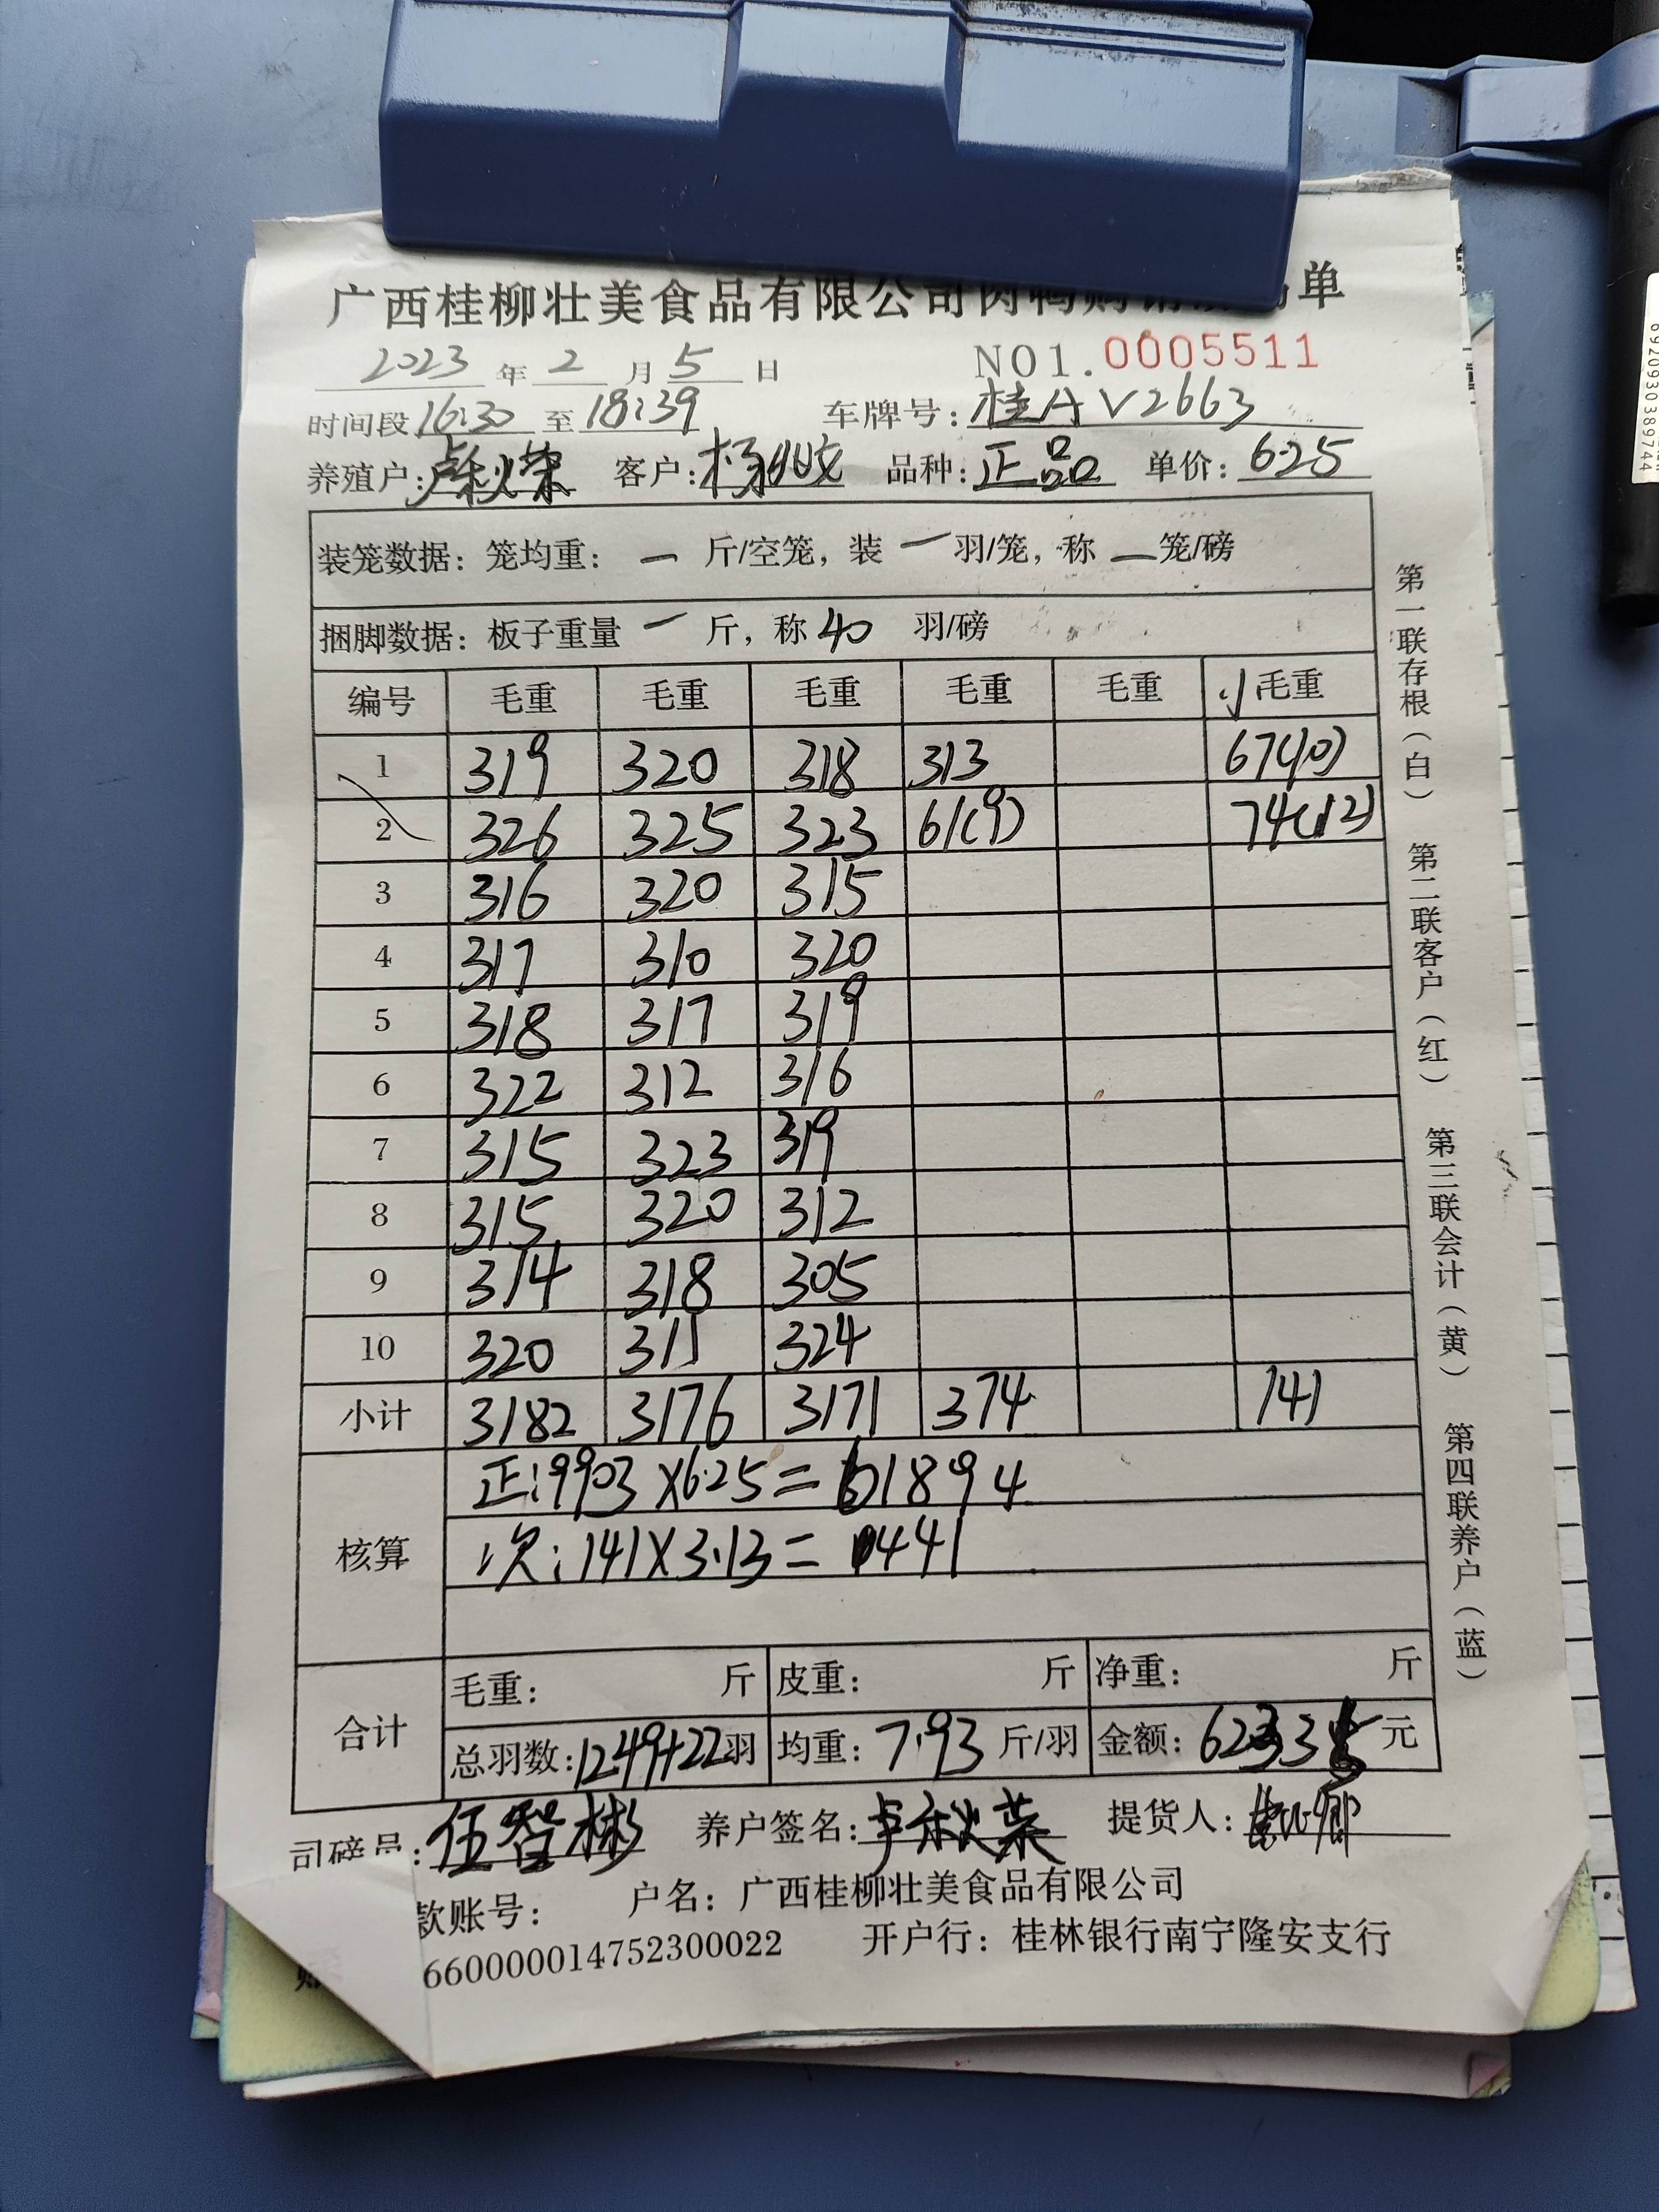 广西桂柳壮美食品有限公司肉鸭购销 单
2023 年 2 月 5 日 NO1. 0005511
时间段 16:30 至 18:39 车牌号: 桂A V2663
养殖户: 卢秋荣 客户: 品种: 正品 单价: 6.25
装笼数据: 笼均重: 一 斤/空笼, 装 一 羽/笼, 称 一 笼/磅
捆脚数据: 板子重量 一 斤, 称 40 羽/磅
编号 毛重 毛重 毛重 毛重 毛重 毛重
1 319 320 318 313 67(10)
2 326 325 323 61(9) 74(12)
3 316 320 315
4 317 310 320
5 318 317 319
6 322 312 316
7 315 323 319
8 315 320 312
9 314 318 305
10 320 311 324
小计 3182 3176 3171 374 141
核算 正:9903×6.25=61894
次:141×3.13=441
合计 毛重: 斤 皮重: 斤 净重: 斤
总羽数: 1249+22 羽 均重: 7.93 斤/羽 金额: 62335 元
司磅员: 伍智彬 养户签名: 卢秋荣 提货人:
款账号: 户名: 广西桂柳壮美食品有限公司
660000014752300022 开户行: 桂林银行南宁隆安支行
第一联存根(白) 第二联客户(红) 第三联会计(黄) 第四联养户(蓝)
6920930389744